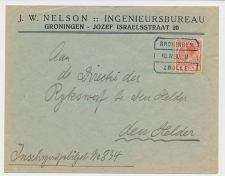 J. W. NELSON :: INGENIEURSBUREAU
GRONINGEN - JOZEF ISRAELSSTRAAT 20
GRONINGEN
ZWOLLE
Aan
de Directie der
Rijkswerf te den Helder
den Helder
Inschrijvingsbiljet No 834